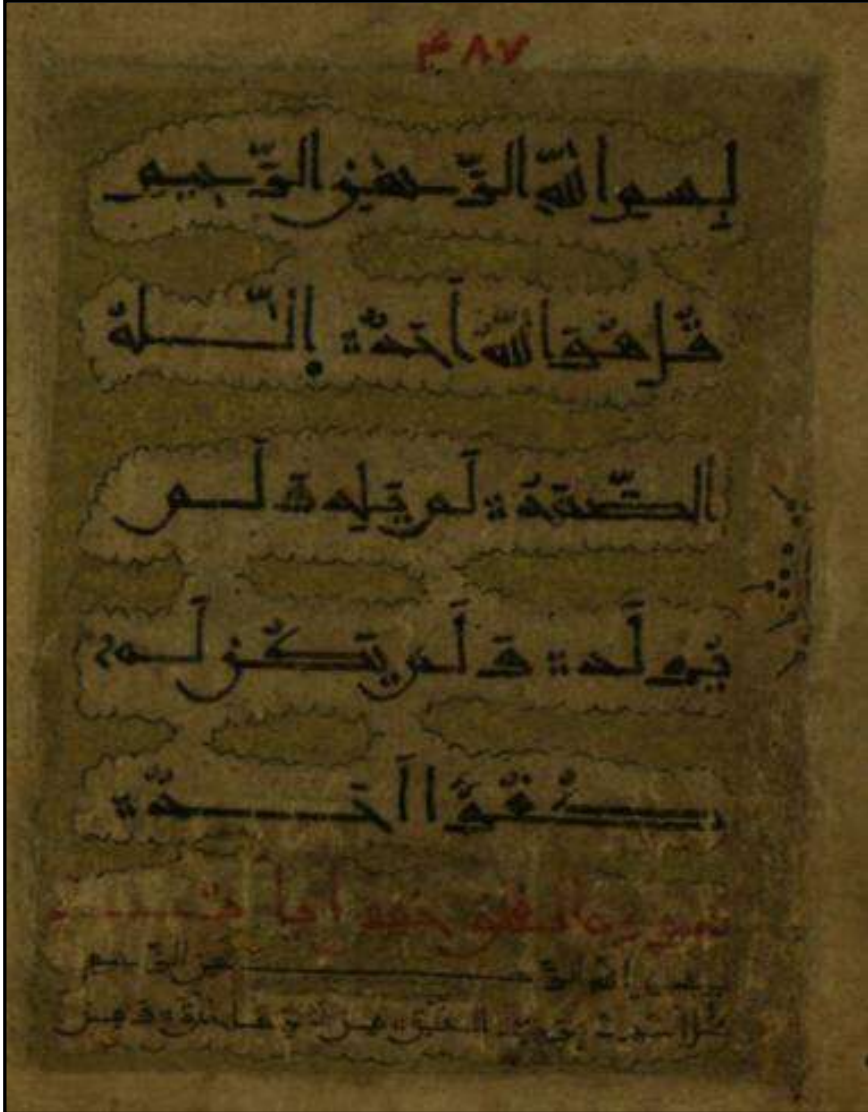 ۴۸۷
بِسمِ اللّٰهِ الرَّحمٰنِ الرَّحِيمِ
قُل هُوَ اللّٰهُ أَحَدٌ اللّٰـهُ
الصَّمَدُ لَم يَلِد وَ لَم
يُولَد وَ لَم يَكُن لَـهُ
كُفُوًا أَحَـدٌ
سورة الفلق خمس آيات
بسم الله الرَّحمن الرَّحيم
قل أعوذ برب الفلق من شر ما خلق و من